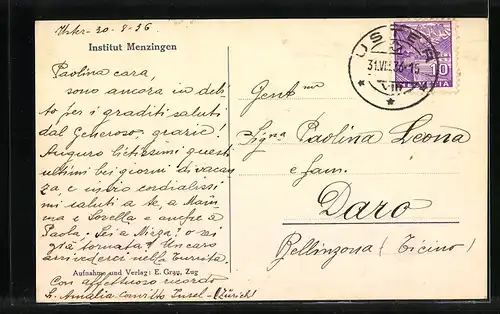 Uster - 30-8-36
Institut Menzingen
Paolina cara,
sono ancora in debi
to per i graditi saluti
dal Generoso, grazie!
Auguro lietissimi questi
ultimi bei giorni di vacan
za, e invio cordialissi
mi saluti a te, a Mam
ma e Sorella e anche a
Paola. Sei a Mirza? o sei
già tornata? Un caro
arrivederci nella
Aufnahme und Verlag: E. Grau, Zug
Con affettuoso ricordo
Sr. Amalia convitto Insel - (Zürich)
USTER
31.VIII.36-15
10
HELVETIA
Gent ma
Signa Paolina Leona
e fam.
Daro
Bellinzona (Ticino)